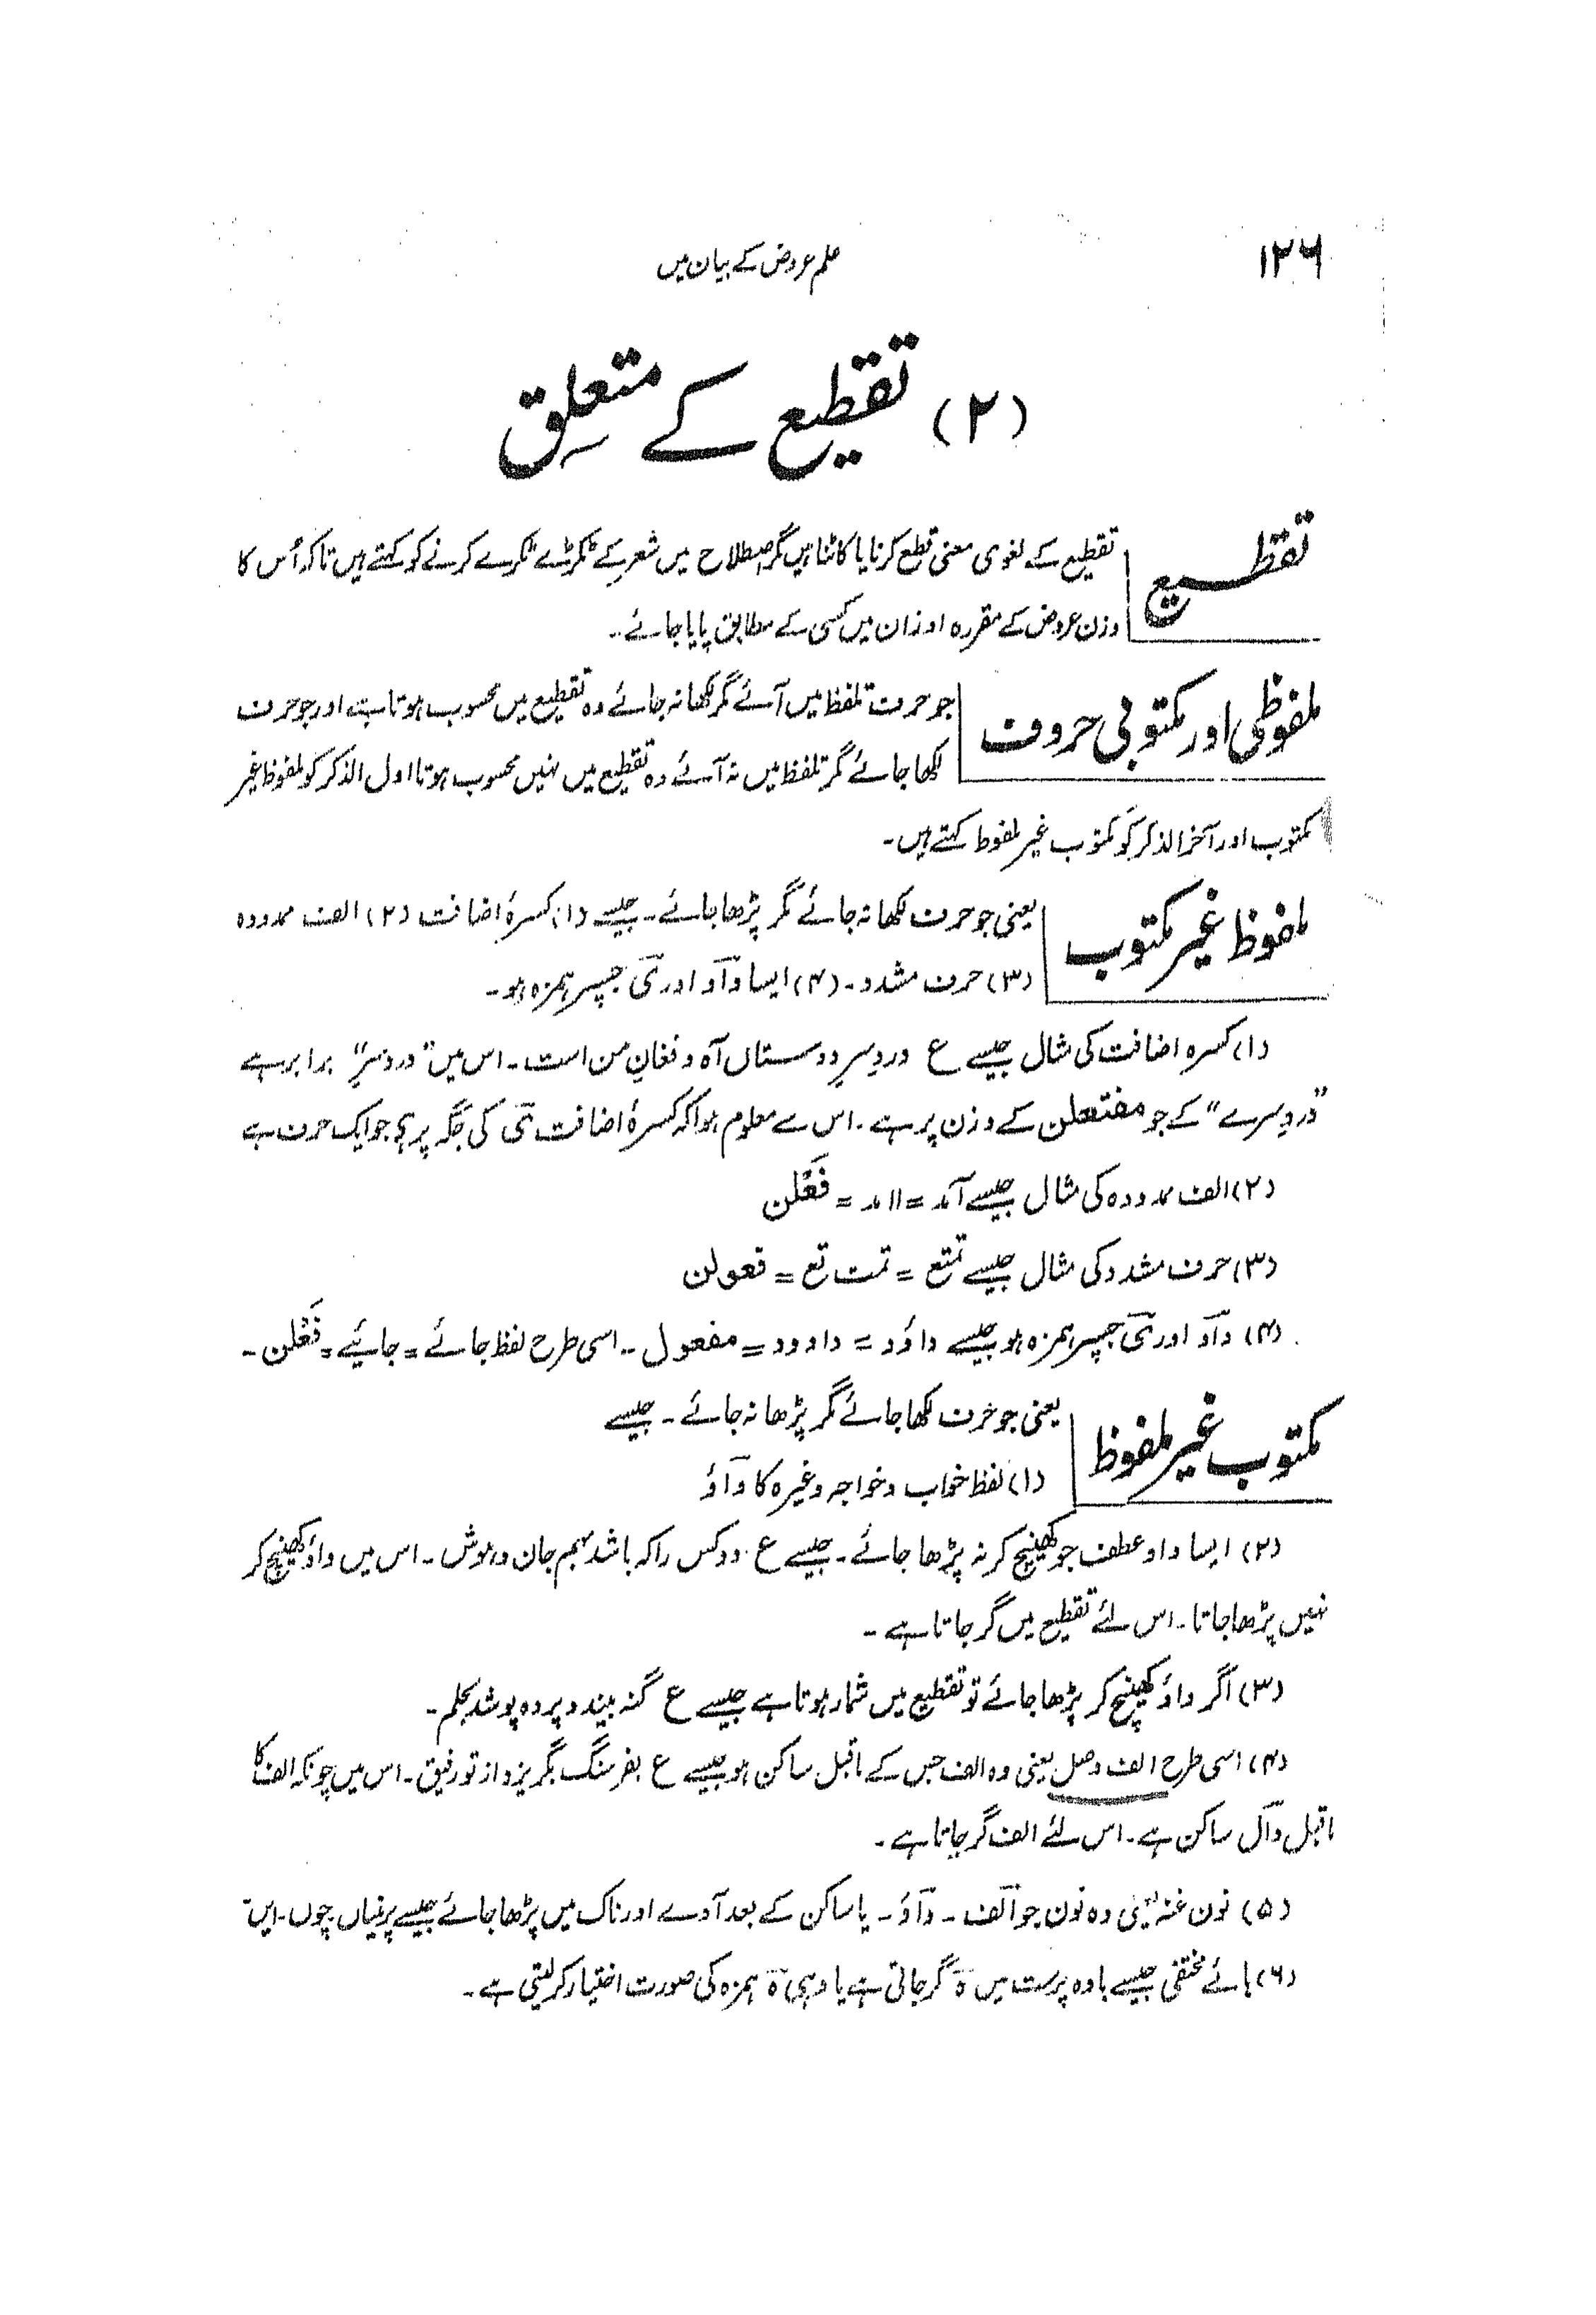 ۱۲۶
علم عروض کے بیان میں
(۲) تقطیع کے متعلق
تقطیع
تقطیع کے لغوی معنی قطع کرنا یا کاٹنا ہیں مگر اصطلاح میں شعر کے ٹکڑے ٹکڑے کرنے کو کہتے ہیں تاکہ اُس کا
وزن عروض کے مقررہ اوزان میں کسی کے مطابق پایا جائے۔
ملفوظی اور مکتوبی حروف
جو حرف تلفظ میں آئے مگر لکھا نہ جائے وہ تقطیع میں محسوب ہوتا ہے اور جو حرف
لکھا جائے مگر تلفظ میں نہ آئے وہ تقطیع میں نہیں محسوب ہوتا اول الذکر کو ملفوظ غیر
مکتوب اور آخر الذکر کو مکتوب غیر ملفوظ کہتے ہیں۔
ملفوظ غیر مکتوب
یعنی جو حرف لکھا نہ جائے مگر پڑھا جائے۔ جیسے (۱) کسرۂ اضافت (۲) الف ممدودہ
(۳) حرف مشدد۔ (۴) ایسا واؤ اور ی جسپر ہمزہ ہو۔
(۱) کسرہ اضافت کی مثال جیسے ع دردِ سرِ دوستاں آہ و فغانِ من است۔ اس میں "دردِ سرِ" برابر ہے
"دردِ سرے" کے جو مفتعلن کے وزن پر ہے۔ اس سے معلوم ہوا کہ کسرۂ اضافت ی کی جگہ پر ہے جو ایک حرف ہے
(۲) الف ممدودہ کی مثال جیسے آمد = اامد = فَعْلن
(۳) حرف مشدد کی مثال جیسے تمتع = تمت تع = فعولن
(۴) واؤ اور ی جسپر ہمزہ ہو جیسے داؤد = داوود = مفعول۔ اسی طرح لفظ جائے = جایئے = فَعْلن۔
مکتوب غیر ملفوظ
یعنی جو حرف لکھا جائے مگر پڑھا نہ جائے۔ جیسے
(۱) لفظ خواب و خواجہ وغیرہ کا واؤ
(۲) ایسا واو عطف جو کھینچ کر نہ پڑھا جائے۔ جیسے ع دو کس را کہ باشد بہم جان و ہوش۔ اس میں واؤ کھینچ کر
نہیں پڑھا جاتا۔ اس لئے تقطیع میں گر جاتا ہے۔
(۳) اگر واؤ کھینچ کر پڑھا جائے تو تقطیع میں شمار ہوتا ہے جیسے ع گنہ بیند و پردہ پوشد بحلم۔
(۴) اسی طرح الف وصل یعنی وہ الف جس کے ماقبل ساکن ہو جیسے ع بفرسنگ بگریزد از تو رفیق۔ اس میں چونکہ الف کا
ماقبل دال ساکن ہے۔ اس لئے الف گر جاتا ہے۔
(۵) نون غنہ یعنی وہ نون جو الف۔ واؤ۔ یا ساکن کے بعد آوے اور ناک میں پڑھا جائے جیسے پرنیاں چوں۔ ایں۔
(۶) ہائے مختفی جیسے بادہ پرست میں ہ گر جاتی ہے یا وہی ہ ہمزہ کی صورت اختیار کر لیتی ہے۔